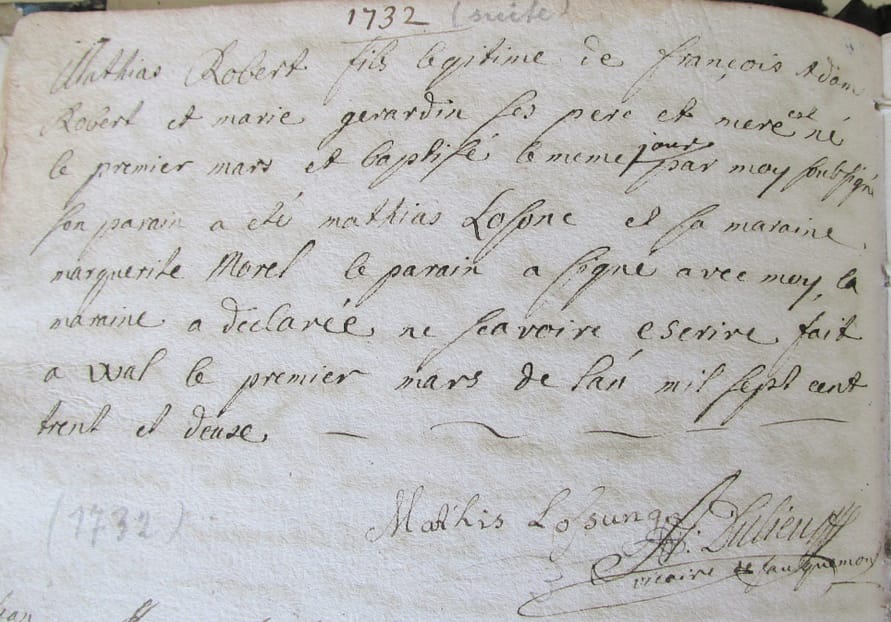 1732 (suite)
Mathias Robert fils legitime de françois Adam
Robert et marie gerardin ses pere et mere est né
le premier mars et baptisé le meme jour par moy soubsigné
son parain a eté mathias Lossone et sa maraine
marguerite Morel le parain a signé avec moy, la
maraine a declarée ne scavoire escrire fait
a wal le premier mars de l'an mil sept cent
trent et deuxe.
(1732)
Mathis Lossung
vicaire de faulquemont